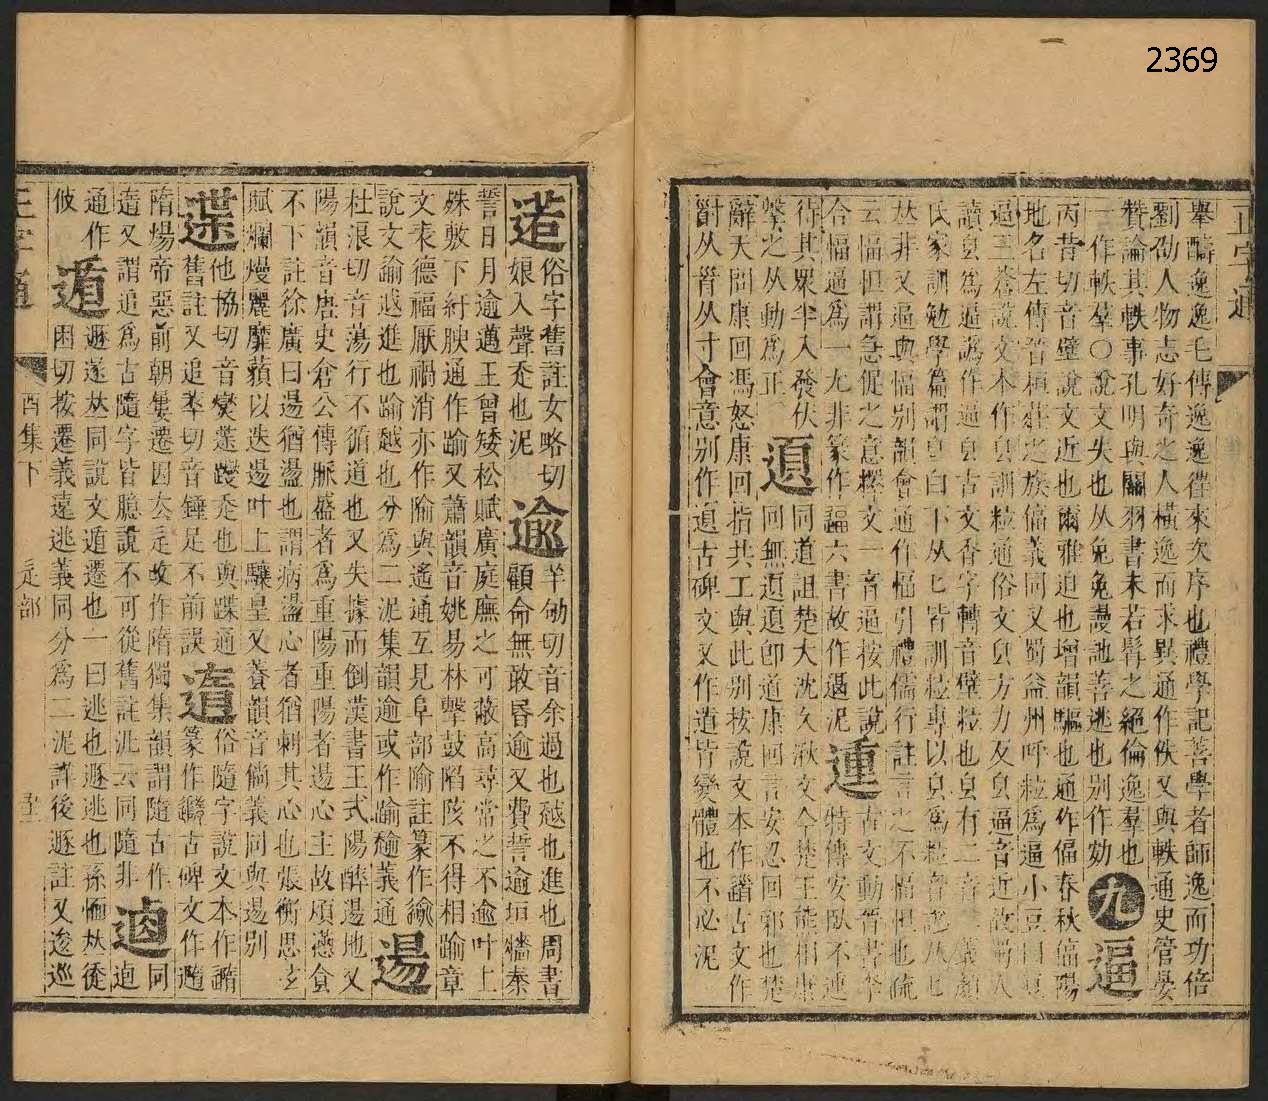 2369
正字通
舉疇逸逸毛傳逸逸徃來次序也禮學記善學者師逸而功倍
劉劭人物志好奇之人橫逸而求異通作佚又與軼通史管晏
贊論其軼事孔明與關羽書未若髯之絕倫逸羣也
一作軼羣〇說文失也从兔兔謾訑善逃也别作劮 九 逼
丙昔切音壁說文近也爾雅迫也增韻驅也通作偪春秋偪陽
地名左傳晉桓莊之族偪義同又蜀益州呼粒爲逼小豆曰豆
逼三蒼說文本作皀訓粒通俗文皀方力反皀逼音近故蜀人
讀皀爲逼譌作逼皀古文香字轉音壁粒也皀有二音二義顏
氏家訓勉學篇謂皀白下从匕皆訓粒專以皀爲粒
𠀤非又逼與愊别韻會通作愊引禮儒行註言之不愊怛也疏
云愊怛謂急促之意釋文一音逼按此說
合愊逼爲一尤非篆作逼六書故作逼泥 運 古文動晉書犖
特傳安臥不連
待其眾半入發伏
擊之从動爲正 𨔝 同道詛楚大沈久湫文今楚王熊相康
回無𨔝𨔝卽道康回言安忍回邪也楚
辭天問康回馮怒康回指共工與此别按說文本作𨕥古文作
𡬹从𩠐从寸會意别作𨔝古碑文又作道皆變體也不必泥
逽 俗字舊註女略切
娘入聲走也泥 逾 羊劬切音余過也越也進也周書
顧命無敢昬逾又費誓逾垣牆秦
誓日月逾邁王曾矮松賦廣庭廡之可蔽高尋常之不逾叶上
姝敷下紆腴通作踰又蕭韻音姚易林擊鼓陷陔不得相踰章
文表德福厭禍消亦作隃與遙通互見阜部隃註篆作逾
說文論越進也踰越也分爲二泥集韻逾或作踰𧼯義通 逿
杜浪切音蕩行不循道也又失據而倒漢書王式陽醉逿地又
陽韻音唐史倉公傳脈盛者爲重陽重陽者逿心主故煩懣食
不下註徐廣曰逿猶盪也謂病盪心者猶刺其心也張衡思玄
賦爛熳麗靡藐以迭逿叶上驤皇又養韻音倘義同與逷别
𨔾 他協切音燮𨔾躞走也與蹀通
舊註又追萃切音錘足不前誤 遀 俗隨字說文本作䜐
篆作隨古碑文作遀
隋煬帝惡前朝屢遷因去辵改作隋獨集韻謂隨古作
遀又謂追爲古隨字皆臆說不可從舊註沠云同隨非 𨓹 同
逌
通作
攸 遁 遯遂𠀤同說文遁遷也一曰逃也遯逃也孫愐𠀤徒
困切按遷義遠逃義同分爲二泥詳後遯註又逡巡
正字通
酉集下
辵部